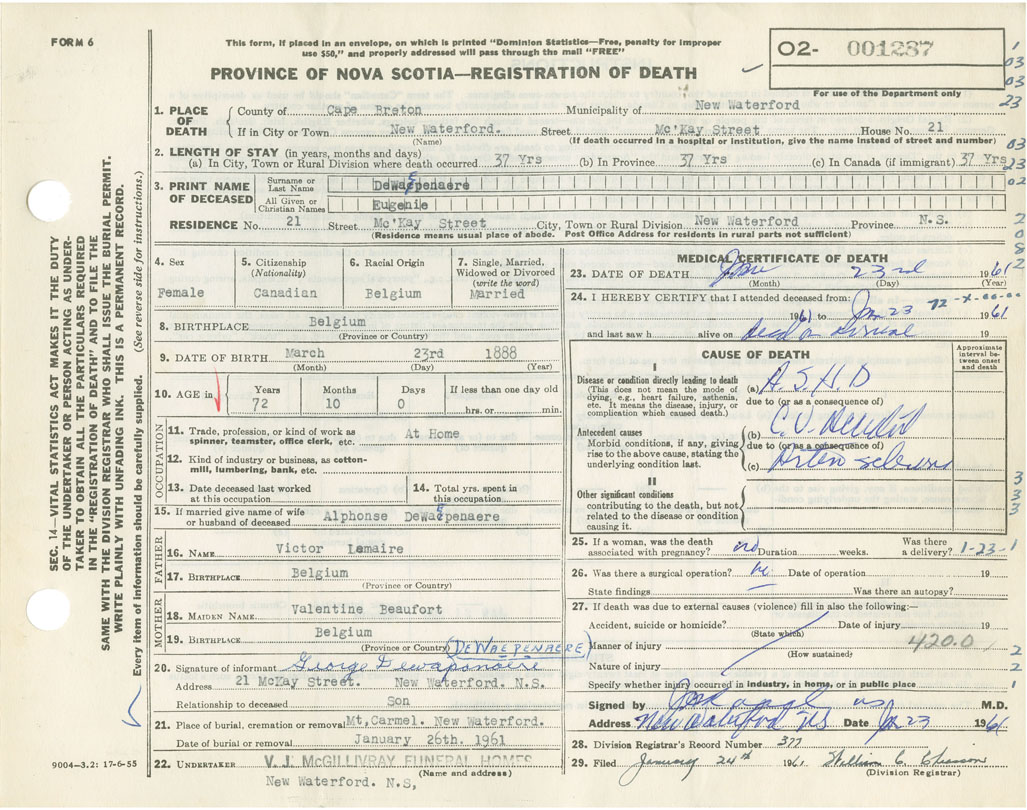 FORM 6
This form, if placed in an envelope, on which is printed "Dominion Statistics—Free, penalty for improper
use $50," and properly addressed will pass through the mail "FREE"
PROVINCE OF NOVA SCOTIA—REGISTRATION OF DEATH
O2- 001287
For use of the Department only
1. PLACE OF DEATH
County of Cape Breton Municipality of New Waterford
If in City or Town New Waterford. Street Mc'Kay Street House No. 21
(Name) (If death occurred in a hospital or institution, give the name instead of street and number)
2. LENGTH OF STAY (in years, months and days)
(a) In City, Town or Rural Division where death occurred 37 Yrs (b) In Province 37 Yrs (c) In Canada (if immigrant) 37 Yrs
3. PRINT NAME OF DECEASED
Surname or Last Name DeWaepenaere
All Given or Christian Names Eugenie
RESIDENCE No. 21 Street Mc'Kay Street City, Town or Rural Division New Waterford Province N.S.
(Residence means usual place of abode. Post Office Address for residents in rural parts not sufficient)
4. Sex
Female
5. Citizenship
(Nationality)
Canadian
6. Racial Origin
Belgium
7. Single, Married, Widowed or Divorced
(write the word)
Married
8. BIRTHPLACE Belgium
(Province or Country)
9. DATE OF BIRTH March 23rd 1888
(Month) (Day) (Year)
10. AGE in
Years Months Days If less than one day old
72 10 0 hrs. or min.
OCCUPATION
11. Trade, profession, or kind of work as
spinner, teamster, office clerk, etc. At Home
12. Kind of industry or business, as cotton-
mill, lumbering, bank, etc.
13. Date deceased last worked
at this occupation
14. Total yrs. spent in
this occupation
15. If married give name of wife
or husband of deceased Alphonse DeWaepenaere
FATHER
16. NAME Victor Lemaire
17. BIRTHPLACE Belgium
(Province or Country)
MOTHER
18. MAIDEN NAME Valentine Beaufort
19. BIRTHPLACE Belgium
(Province or Country) (DEWAEPENAERE)
20. Signature of informant George Dewapenaere
Address 21 McKay Street. New Waterford. N.S.
Relationship to deceased Son
21. Place of burial, cremation or removal Mt, Carmel. New Waterford.
Date of burial or removal January 26th. 1961
22. UNDERTAKER V. J. McGILLIVRAY FUNERAL HOMES
(Name and address)
New Waterford. N.S,
MEDICAL CERTIFICATE OF DEATH
23. DATE OF DEATH Jan 23rd 1961
(Month) (Day) (Year)
24. I HEREBY CERTIFY that I attended deceased from:
72-X-00-00
1961 to Jan 23 1961
and last saw h alive on dead on arrival 19
CAUSE OF DEATH
Approximate interval between onset and death
I
Disease or condition directly leading to death
(This does not mean the mode of
dying, e.g., heart failure, asthenia,
etc. It means the disease, injury, or
complication which caused death.)
(a) A.S.H.D
due to (or as a consequence of)
Antecedent causes
Morbid conditions, if any, giving
rise to the above cause, stating the
underlying condition last.
(b) C.V.
due to (or as a consequence of)
(c)
II
Other significant conditions
contributing to the death, but not
related to the disease or condition
causing it.
25. If a woman, was the death
associated with pregnancy? no Duration weeks. Was there
a delivery? 1-23-1
26. Was there a surgical operation? no Date of operation 19
State findings Was there an autopsy?
27. If death was due to external causes (violence) fill in also the following:—
Accident, suicide or homicide? Date of injury 19
(State which)
Manner of injury 420.0
(How sustained)
Nature of injury
Specify whether injury occurred in industry, in home, or in public place
Signed by M.D.
Address New Waterford NS Date Jan 23 1961
28. Division Registrar's Record Number 377
29. Filed January 24th 1961 William C. Chiasson
(Division Registrar)
9004-3.2: 17-6-55
SEC. 14—VITAL STATISTICS ACT MAKES IT THE DUTY
OF THE UNDERTAKER OR PERSON ACTING AS UNDER-
TAKER TO OBTAIN ALL THE PARTICULARS REQUIRED
IN THE "REGISTRATION OF DEATH" AND TO FILE THE
SAME WITH THE DIVISION REGISTRAR WHO SHALL ISSUE THE BURIAL PERMIT.
WRITE PLAINLY WITH UNFADING INK. THIS IS A PERMANENT RECORD.
Every item of information should be carefully supplied. (See reverse side for instructions.)
1
03
03
23
03
23
02
2
0
8
3
3
3
1
2
2
1